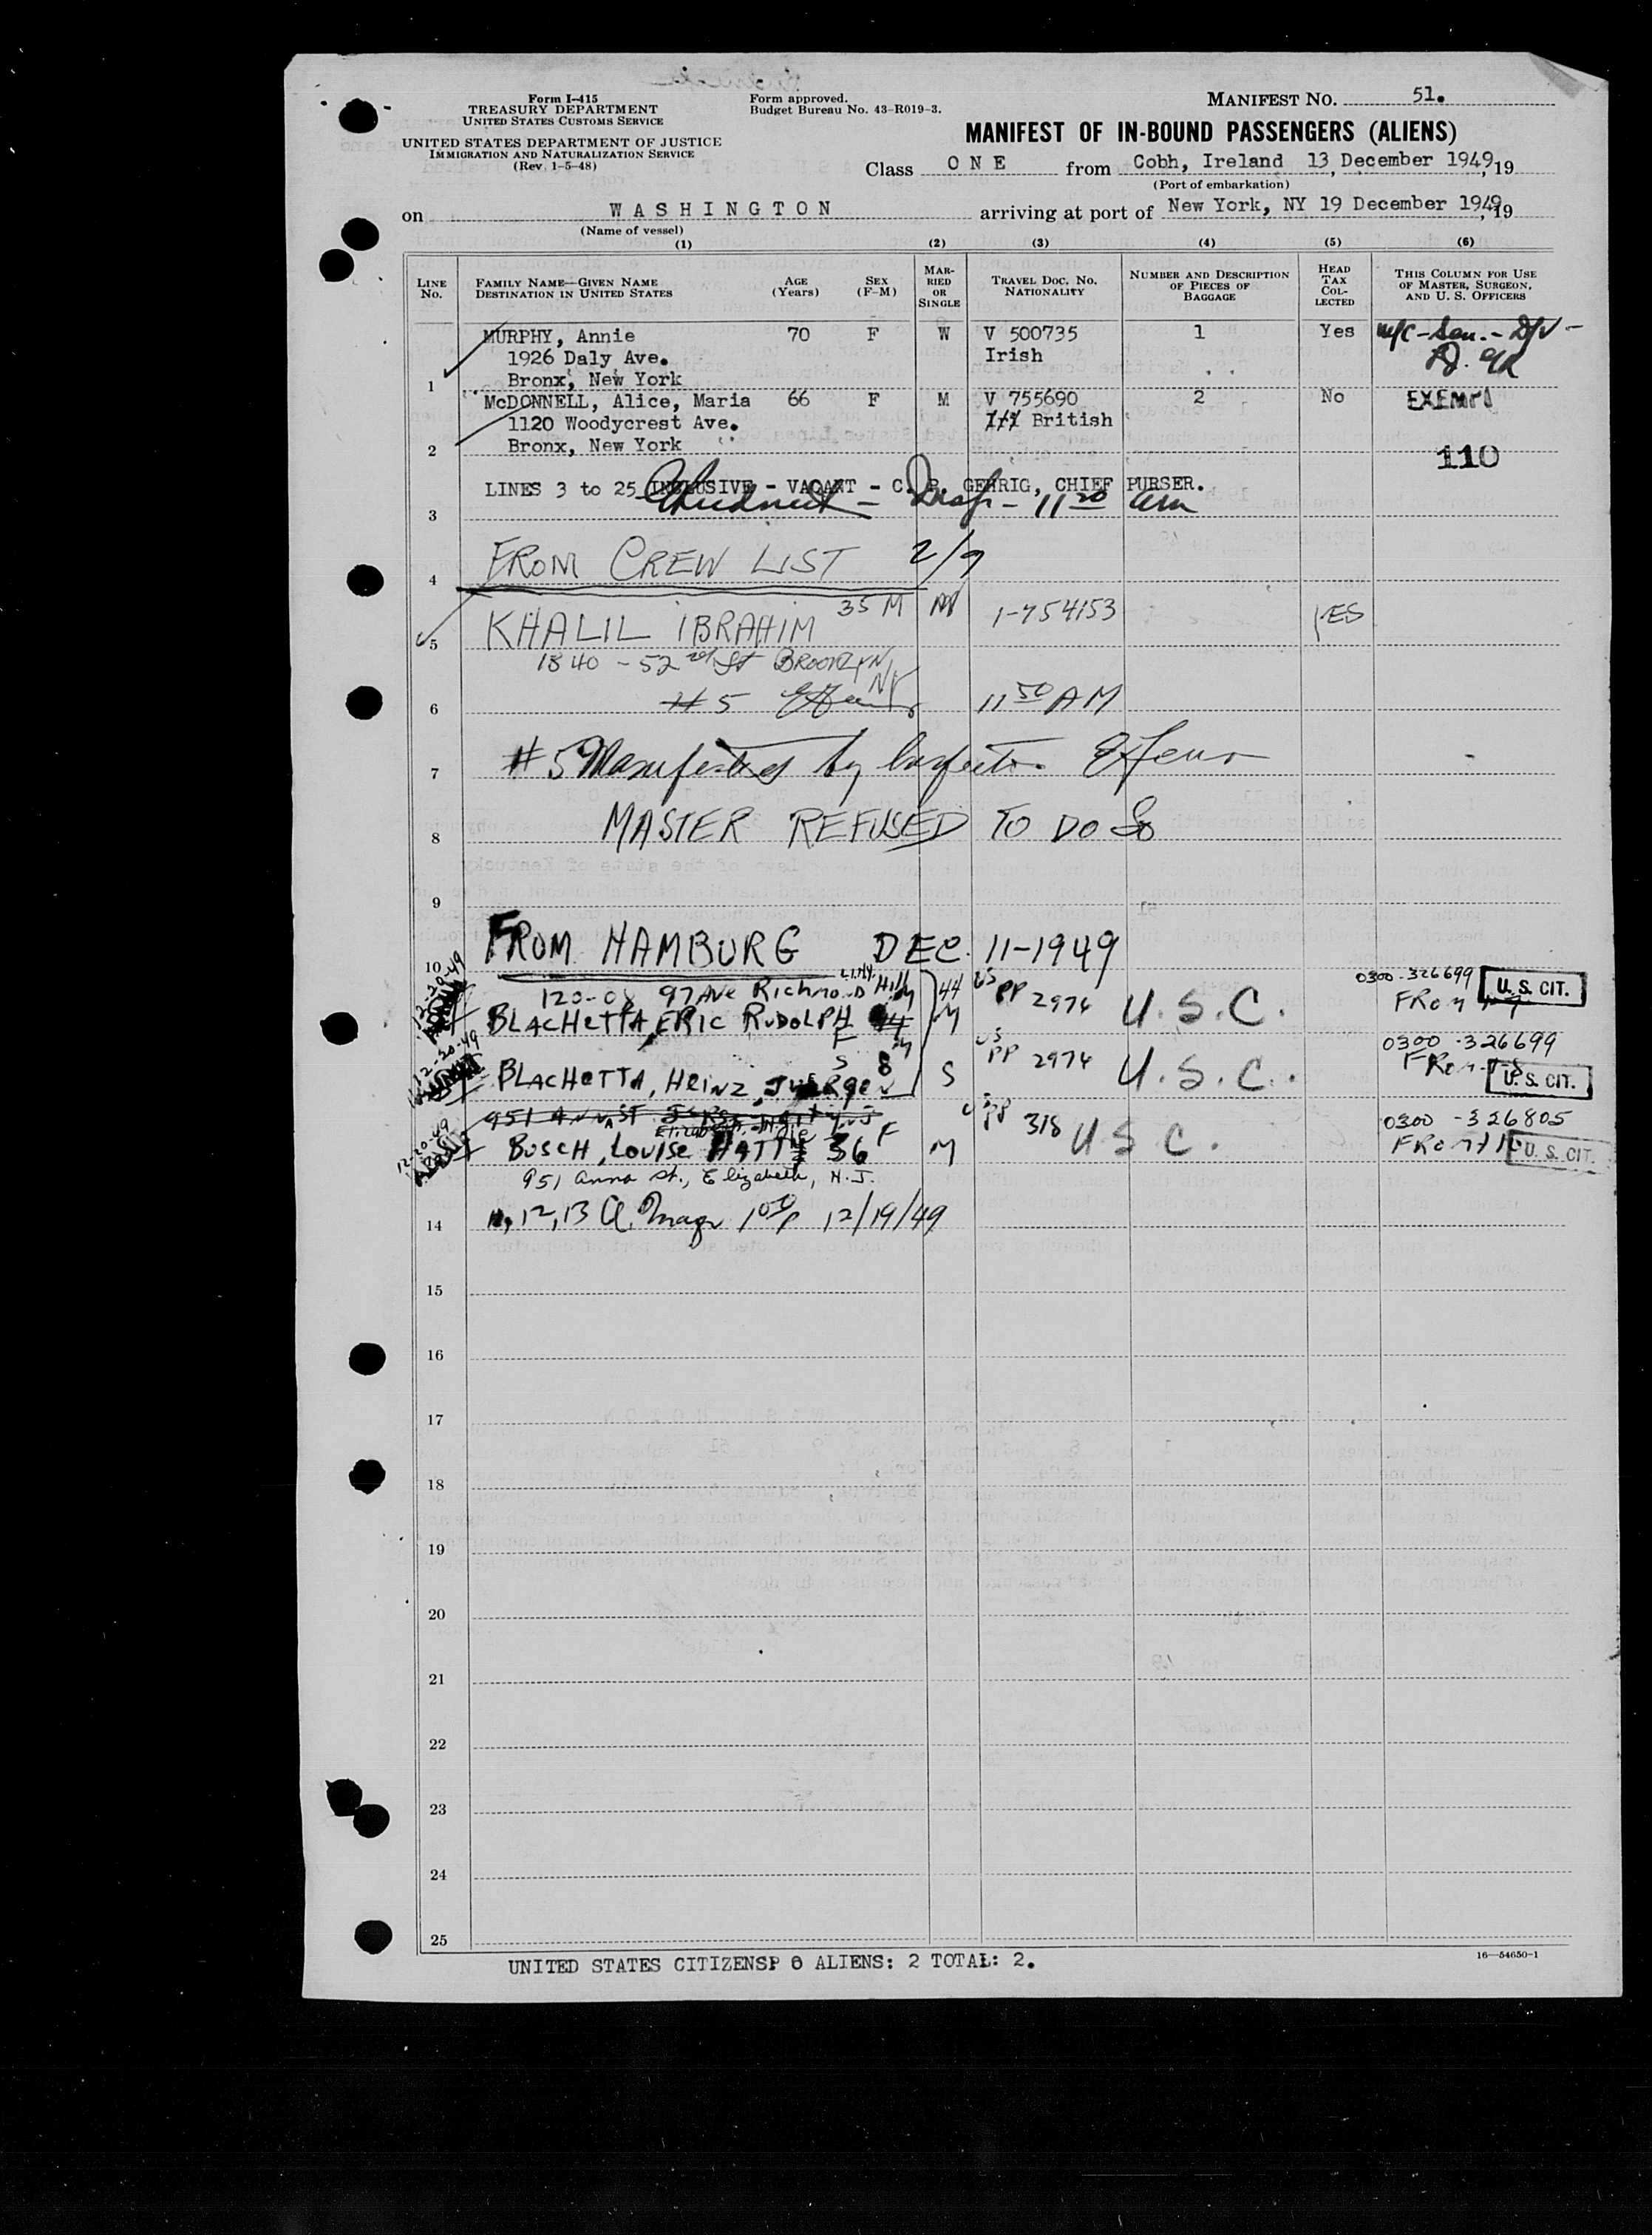 Form I-415
TREASURY DEPARTMENT
UNITED STATES CUSTOMS SERVICE
UNITED STATES DEPARTMENT OF JUSTICE
IMMIGRATION AND NATURALIZATION SERVICE
(Rev. 1-5-48)
Form approved.
Budget Bureau No. 43-R019-3.
MANIFEST NO. 51.
MANIFEST OF IN-BOUND PASSENGERS (ALIENS)
Class ONE from Cobh, Ireland 13 December 1949, 19
(Port of embarkation)
on WASHINGTON arriving at port of New York, NY 19 December 1949, 19
(Name of vessel)
(1) (2) (3) (4) (5) (6)
LINE No. FAMILY NAME—GIVEN NAME DESTINATION IN UNITED STATES AGE (Years) SEX (F-M) MARRIED OR SINGLE TRAVEL DOC. NO. NATIONALITY NUMBER AND DESCRIPTION OF PIECES OF BAGGAGE HEAD TAX COLLECTED THIS COLUMN FOR USE OF MASTER, SURGEON, AND U. S. OFFICERS
MURPHY, Annie 70 F W V 500735 1 Yes
1926 Daly Ave. Irish
1 Bronx, New York
McDONNELL, Alice, Maria 66 F M V 755690 2 No EXEMPT
1120 Woodycrest Ave. British
2 Bronx, New York 110
LINES 3 to 25 INCLUSIVE - VACANT - C. R. GEHRIG, CHIEF PURSER.
3 11 20 am
4 FROM CREW LIST 2/9
5 KHALIL IBRAHIM 35 M M 1-754153 YES
1840 - 52nd St BROOKLYN NY
6 #5 11 50 AM
7 #5 Manifested by Inspector
8 MASTER REFUSED TO DO So
9
10 FROM HAMBURG DEC. 11-1949
120-08 97 Ave Richmond Hill 44 US 0300-326699
12-20-49 BLACHETTA, ERIC RUDOLPH M PP 2974 U.S.C. FROM U. S. CIT.
12-20-49 BLACHETTA, HEINZ, JUERGEN 8 S US PP 2974 U.S.C. 0300-326699 FROM U. S. CIT.
12-20-49 BUSCH, LOUISE HATTIE 36 F M US PP 318 USC. 0300-326805 FROM U. S. CIT.
951 Anna St., Elizabeth, N.J.
14 11, 12, 13 12/19/49
15
16
17
18
19
20
21
22
23
24
25
UNITED STATES CITIZENSP 0 ALIENS: 2 TOTAL: 2.
16—54650-1